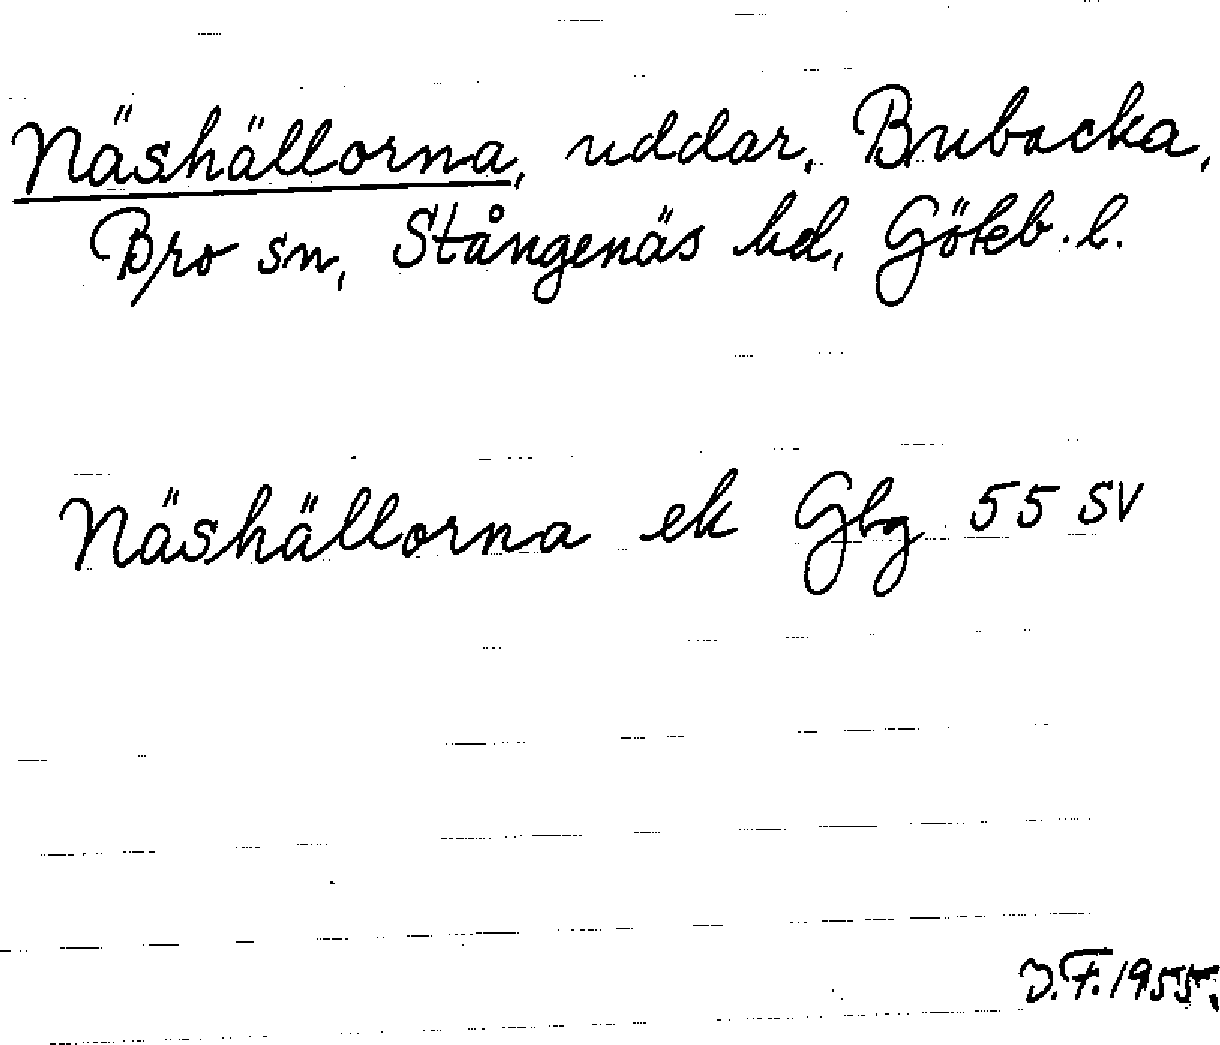 Näshällorna, uddar, Brubacka,
Bro sn, Stångenäs hd, Göteb. l.
Näshällorna ek Gbg 55 SV
J.F. 1955.